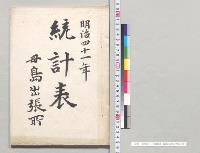 明治四十一年
統計表
母島出張所